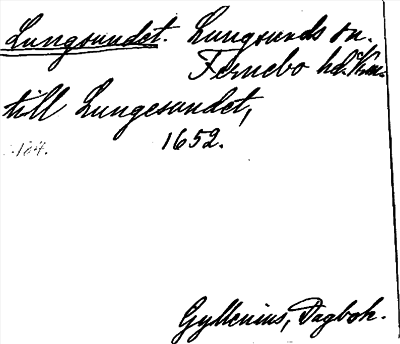 Lungsundet. Lungsunds sn.
Fernebo hd.
till Lungesundet,
1652.
Gyllenius, Dagbok.